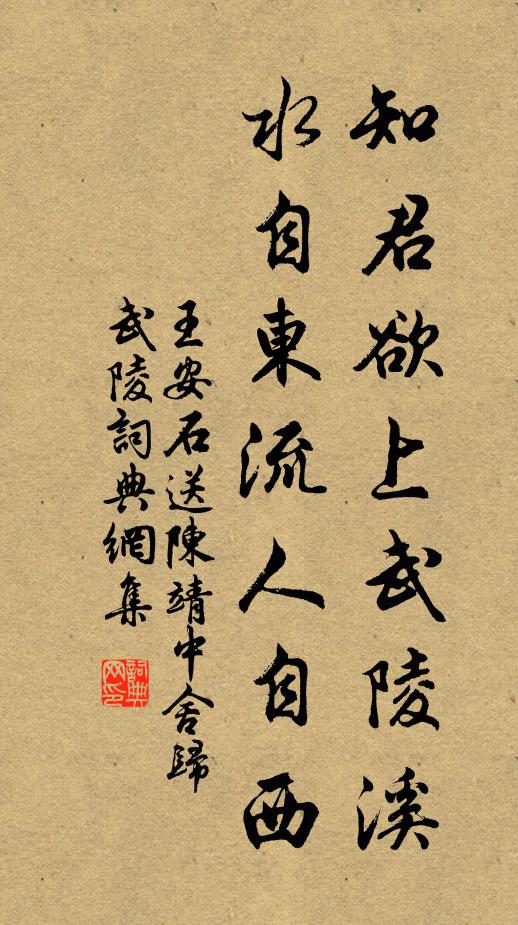 知君欲上武陵溪
水自東流人自西
王安石送陳靖中舍歸
武陵詞典網集
詞典
网印